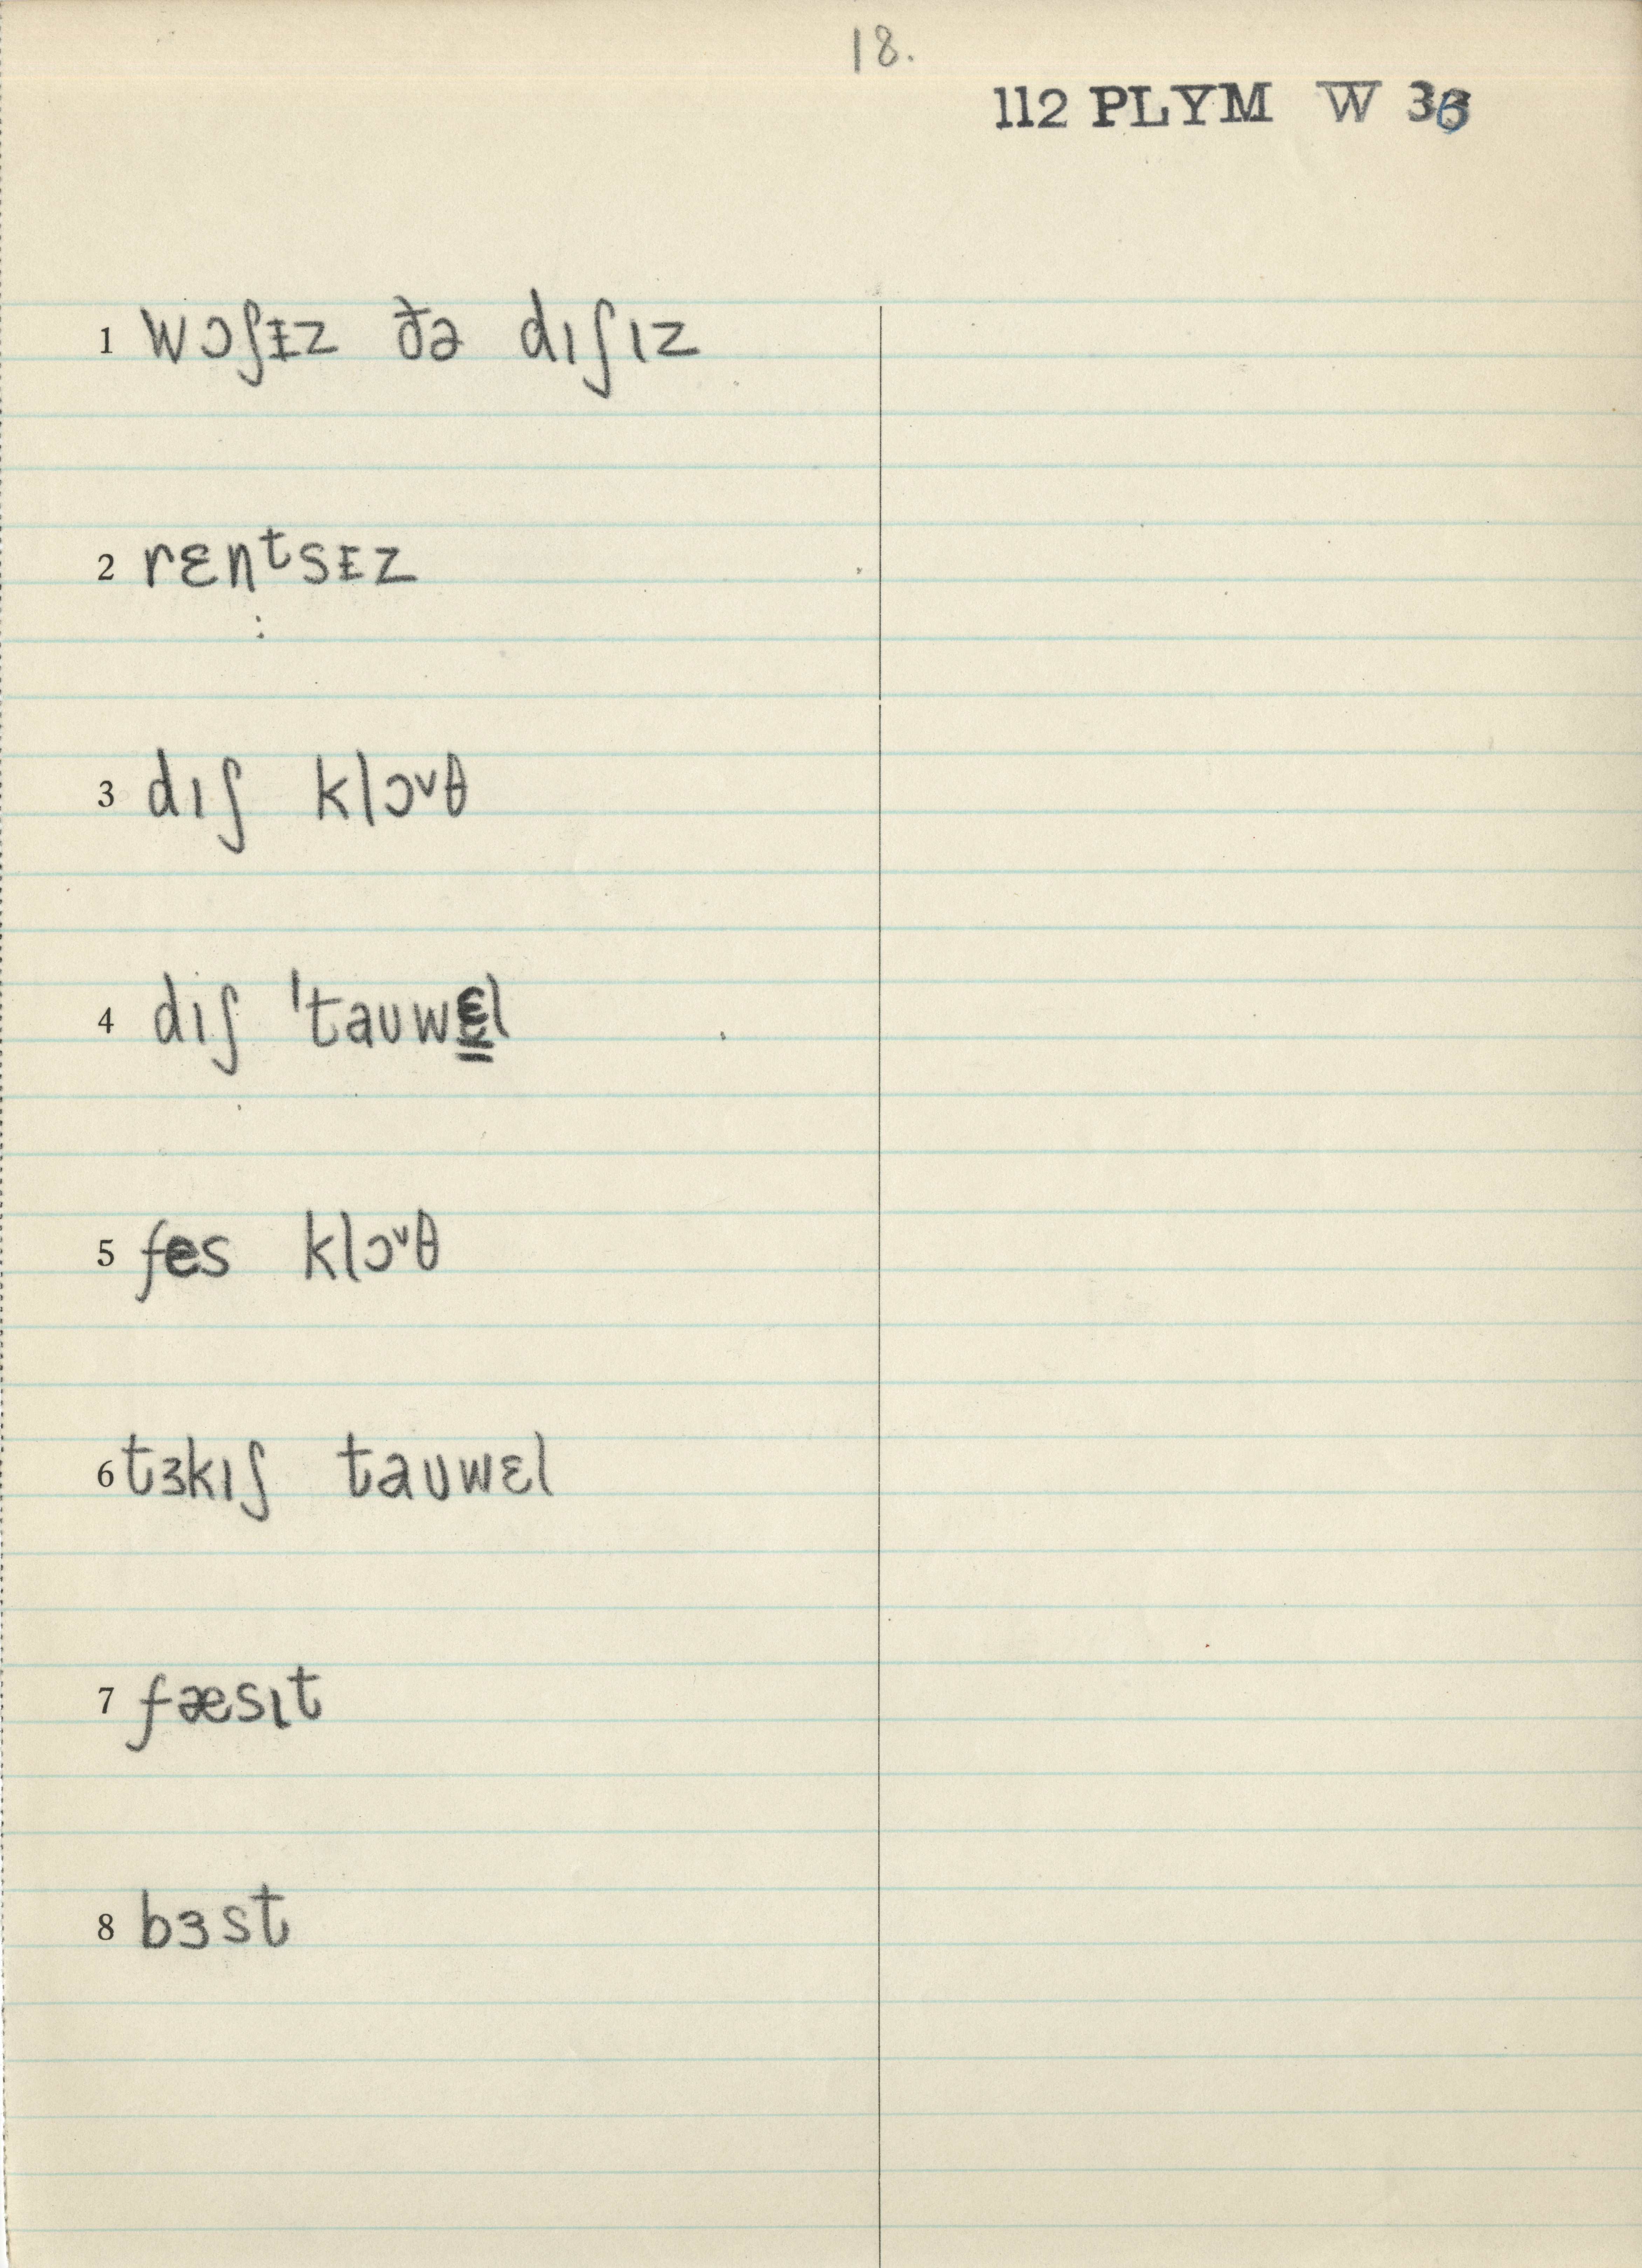 18.
112 PLYM W 36
1 wɔʃᵻz ðə dıʃız
2 rɛnᵗsᵻz
3 dıʃ klɔ˅θ
4 dıʃ ˈtauwɛ̳l
5 fes klɔ˅θ
6 tɜkıʃ tauwɛl
7 fæsıt
8 bɜst